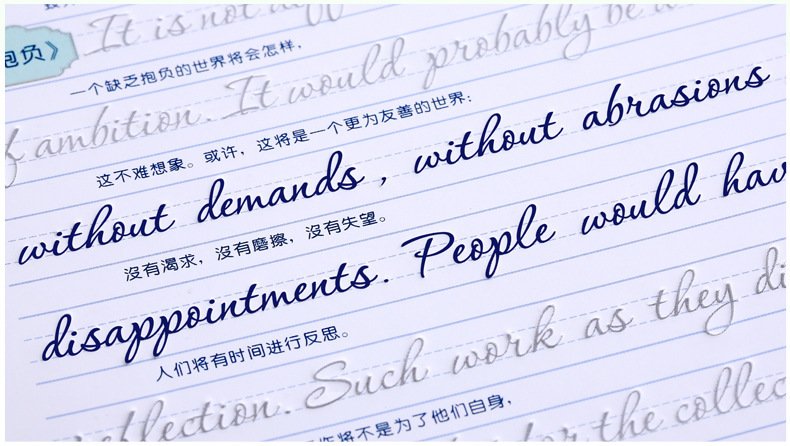 It is not
抱负》
一个缺乏抱负的世界将会怎样，
of ambition. It would probably be
这不难想象。或许，这将是一个更为友善的世界：
without demands , without abrasions
沒有渴求，沒有磨擦，沒有失望。
disappointments. People would hav
人们将有时间进行反思。
reflection. Such work as they di
将不是为了他们自身，
for the collec